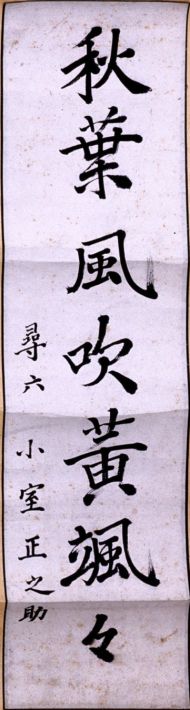 秋葉風吹黄颯々
尋六 小室正之助